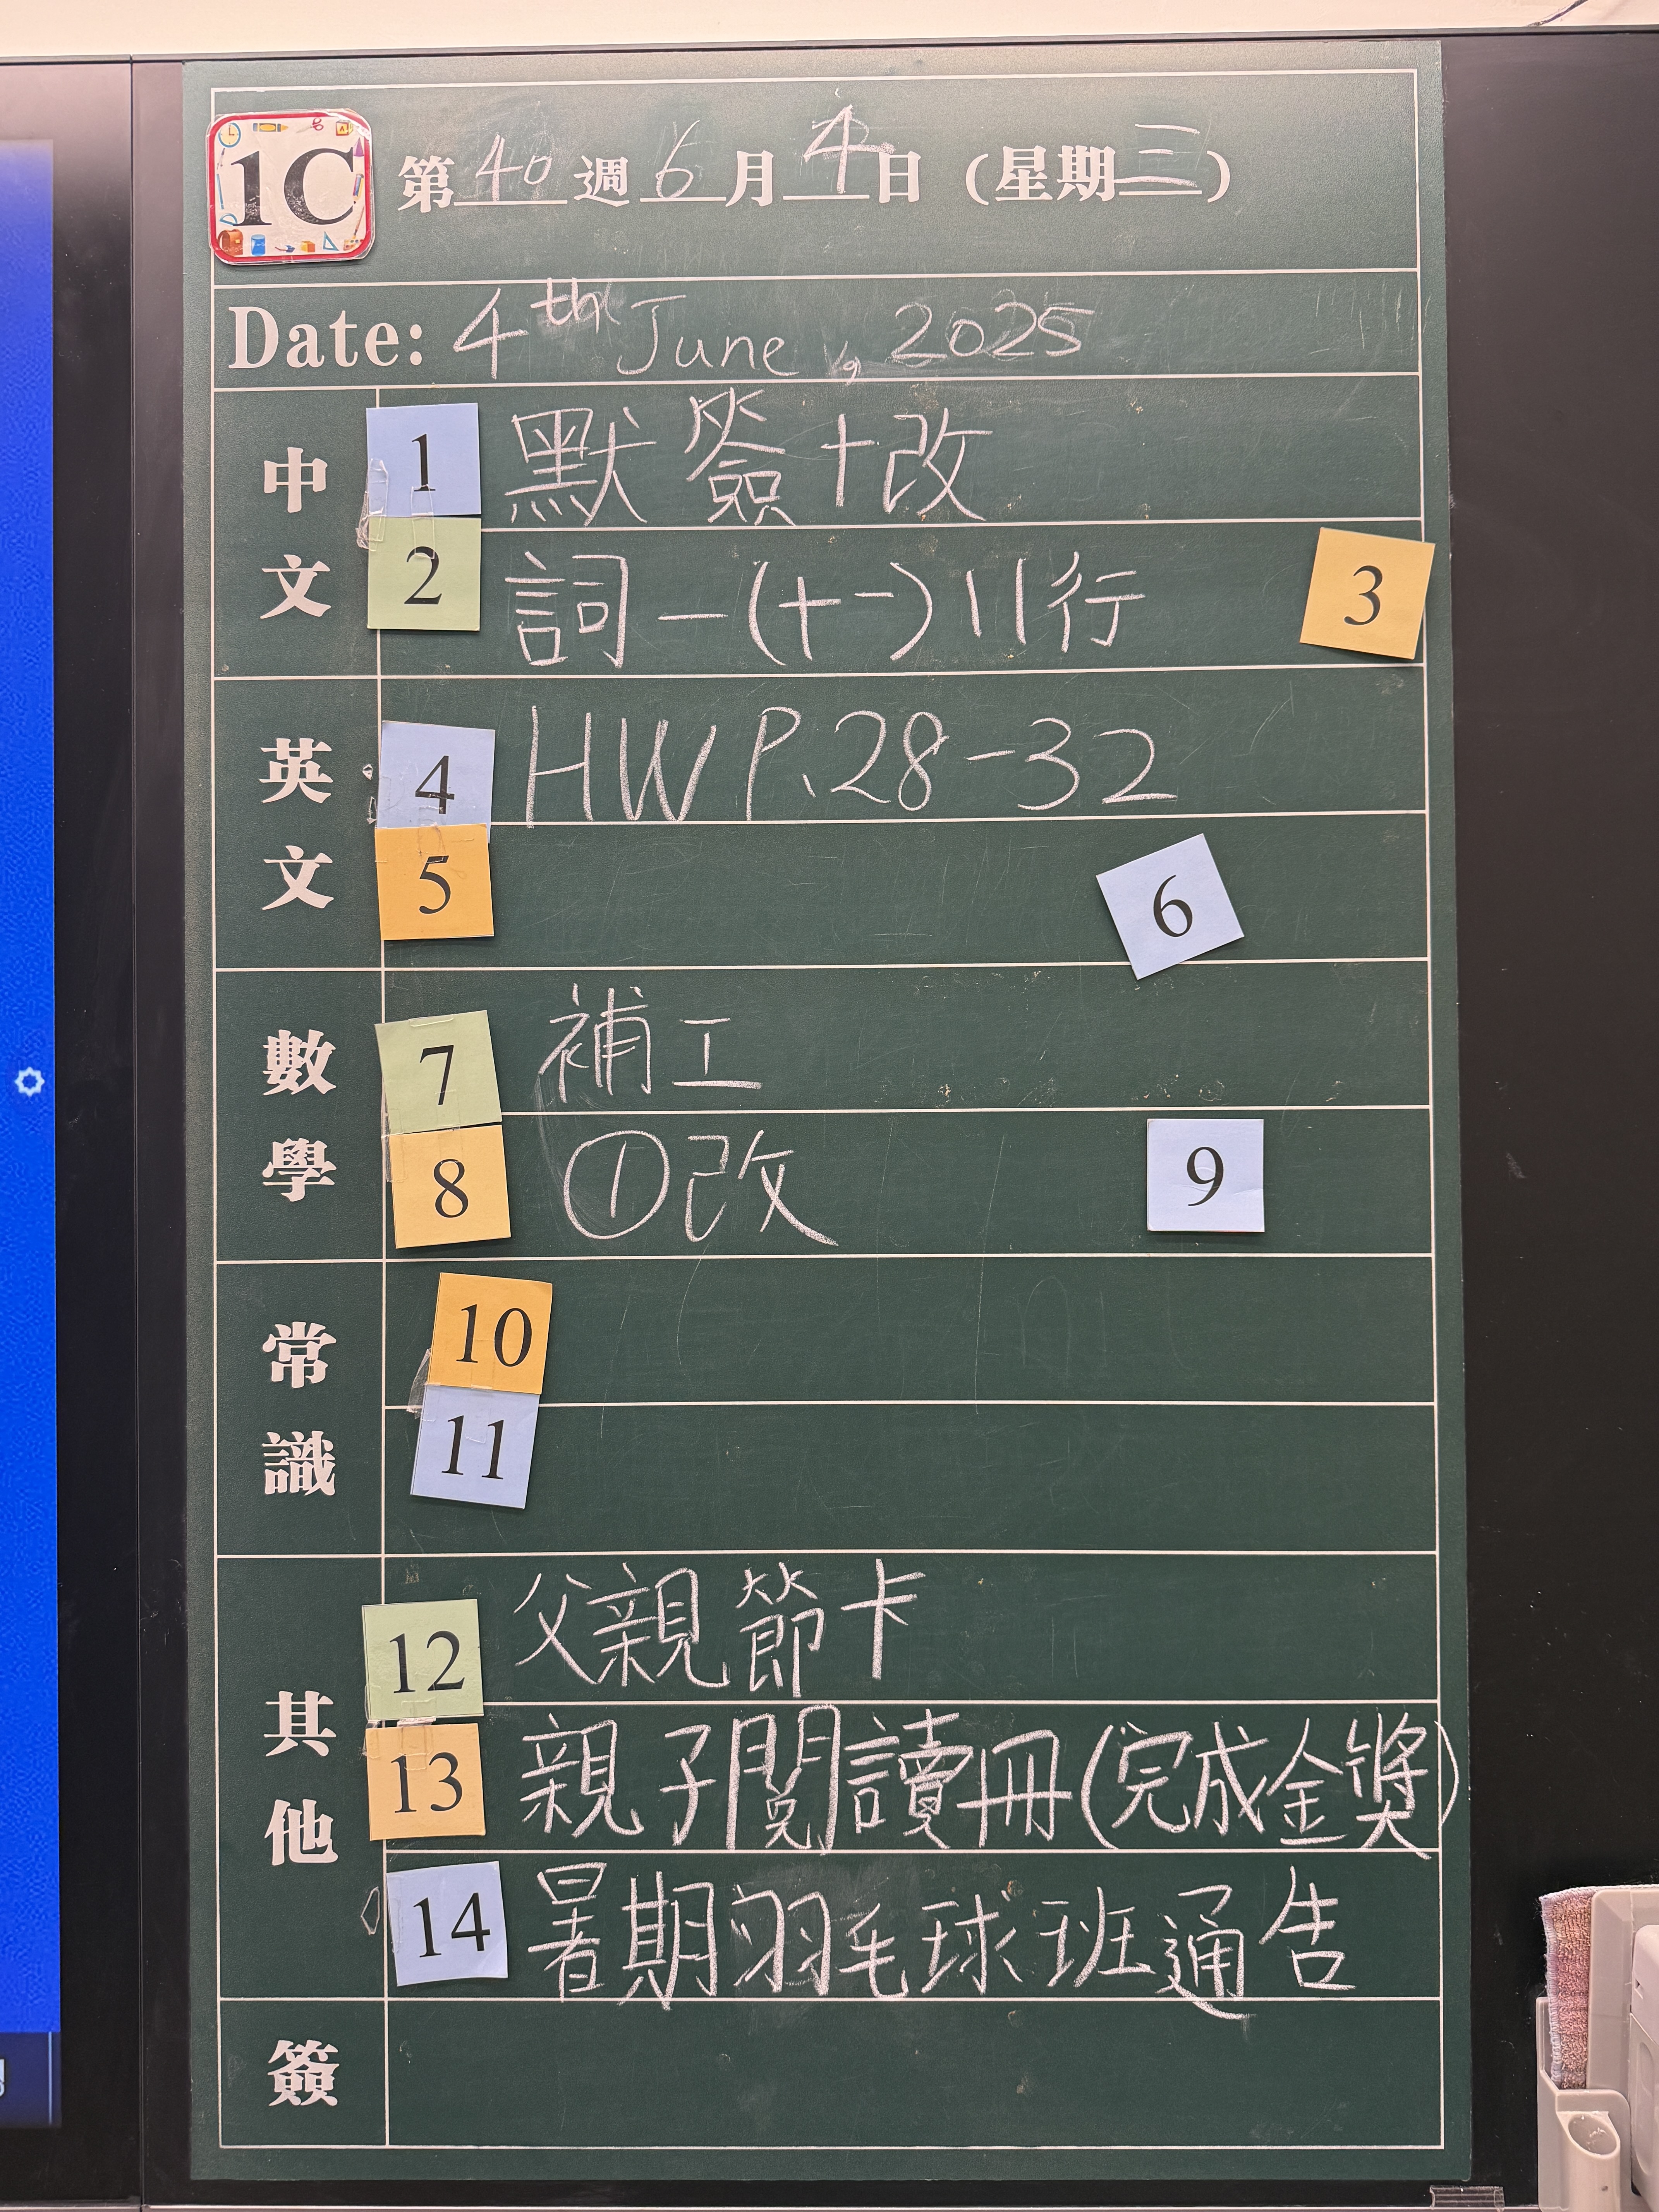 1C 第40週6月4日(星期三)
Date: 4th June, 2025
中文
1 默簽+改
2 詞一(十一)11行 3
英文
4 HW P.28-32
5 6
數學
7 補工
8 ①改 9
常識
10
11
其他
12 父親節卡
13 親子閱讀冊(完成金獎)
14 暑期羽毛球班通告
簽